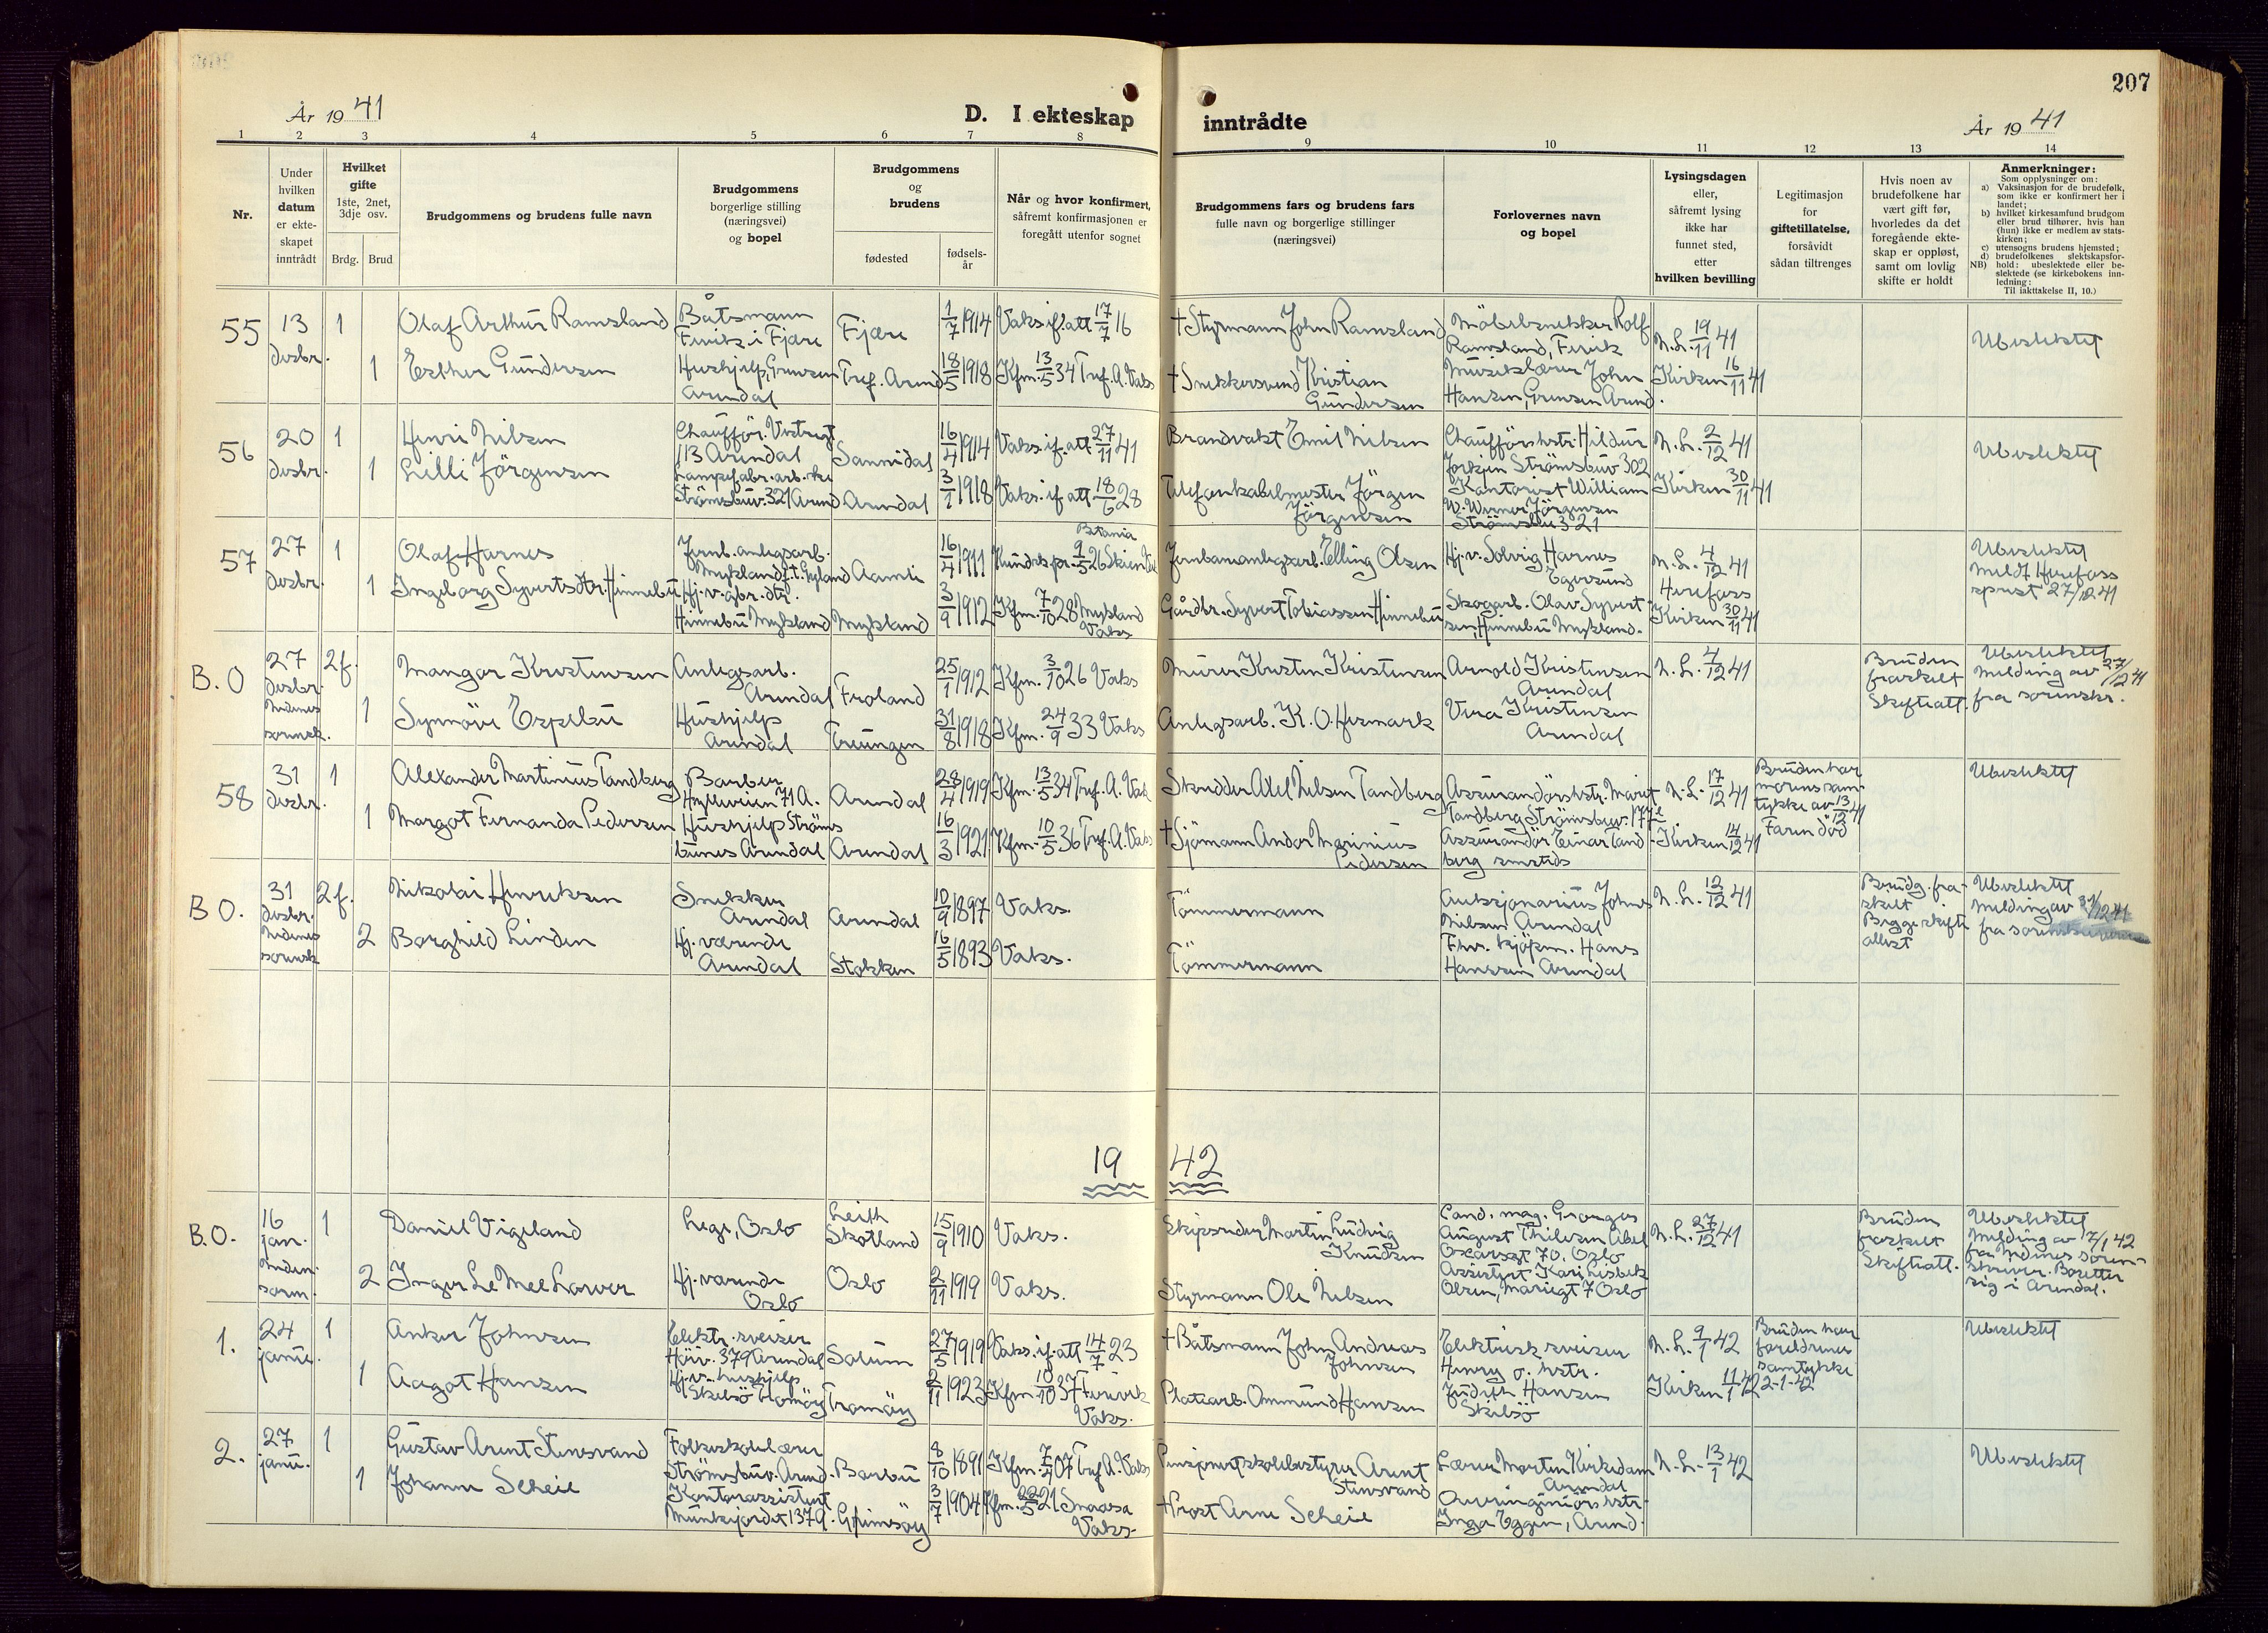 207
År 1941
D. I ekteskap
inntrådte
År 1941
1 2 3 4 5 6 7 8 9 10 11 12 13 14
Nr.
Under
hvilken
datum
er ekte-
skapet
inntrådt
Hvilket
gifte
1ste, 2net,
3dje osv.
Brdg. Brud
Brudgommens og brudens fulle navn
Brudgommens
borgerlige stilling
(næringsvei)
og bopel
Brudgommens
og
brudens
fødested
fødsels-
år
Når og hvor konfirmert,
såfremt konfirmasjonen er
foregått utenfor sognet
Brudgommens fars og brudens fars
fulle navn og borgerlige stillinger
(næringsvei)
Forlovernes navn
og bopel
Lysingsdagen
eller,
såfremt lysing
ikke har
funnet sted,
etter
hvilken bevilling
Legitimasjon
for
giftetillatelse,
forsåvidt
sådan tiltrenges
Hvis noen av
brudefolkene har
vært gift før,
hvorledes da det
foregående ekte-
skap er oppløst,
samt om lovlig
skifte er holdt
Anmerkninger:
Som opplysninger om:
a) Vaksinasjon for de brudefolk,
som ikke er konfirmert her i
landet;
b) hvilket kirkesamfund brudgom
eller brud tilhører, hvis han
(hun) ikke er medlem av stats-
kirken;
c) utensogns brudens hjemsted;
d) brudefolkenes slektskapsfor-
NB) hold: ubeslektede eller be-
slektede (se kirkebokens inn-
ledning:
Til iakttakelse II, 10.)
55
13
desbr.
1
Olaf Arthur Ramsland
Båtsmann
Fevik i Fjære
Fjære
1/7 1914
Vaks.if.att 17/7 16
† Styrmann John Ramsland
Möbelsnekker Rolf
Ramsland, Fevik
N.L. 19/11 41
Ubeslektet
1
Esther Gundersen
Hushjelp, Grensen
Arendal
Tref. Arend
18/5 1918
Kfm. 13/5 34 Tref. A. Vaks
† Snekkersvend Kristian
Gundersen
Musiklærer John
Hansen, Grensen Arend.
Kirken 16/11 41
56
20
desbr.
1
Henri Nilsen
Chaufför. Vestregt
113 Arendal
Sannidal
16/4 1914
Vaks.if.att 27/11 41
Brandvakt Emil Nilsen
Chaufförshstr. Hildur
Terkjen Strömsbuv 302
N.L. 2/12 41
Ubeslektet
1
Lilli Jörgensen
Lampefabr.arb.ke
Strömsbuv. 321 Arend
Arendal
3/1 1918
Vaks. if att 18/6 28
Telefonkabelmester Jörgen
Jörgensen
Kontorist William
W. Werner Jörgensen
Strömsbu 321
Kirken 30/11 41
57
27
desbr.
1
Olaf Harnes
Jernb.anlegsarb.
Mykland f.t. Gyland
Aamli
16/4 1911
Betania
9/5 26 Skien
Jernbaneanlegsarb. Elling Olsen
Hj.v. Solveig Harnes
Egersund
N.L. 4/12 41
Ubeslektet
Meldt Herefoss
sprest 27/12 41
1
Ingeborg Syvertsdtr. Hinnebu
Hj.v. gbr. dtr.
Hinnebu Mykland
Mykland
3/9 1912
Kfm. 7/10 28 Mykland
Vaks
Gårdbr. Syvert Tobiassen Hinnebu
Skogarb. Olav Syvert-
sen, Hinnebu Mykland.
Herefoss
Kirken 30/11 41
B.O
27
desbr.
Nedenes
sorensk.
2f.
Mangor Kristensen
Anlegsarb.
Arendal
Froland
25/1 1912
Kfm. 3/10 26 Vaks
Murer Kristen Kristensen
Arnold Kristensen
Arendal
N.L. 4/12 41
Bruden
fraskilt
Skifteatt.
Ubeslektet
Melding av 27/12 41
fra sorenskr.
1
Synnöve Espebu
Hushjelp
Arendal
Treungen
31/8 1918
Kfm. 24/9 33 Vaks
Anlegsarb. K. O. Hermark
Vera Kristensen
Arendal
58
31
desbr.
1
Alexander Martinius Tandberg
Barber
Hylleveien 71 A.
Arendal
28/4 1919
Kfm. 13/5 34 Tref. A. Vak
Skredder Axel Nilsen Tandberg
Assurandörshstr. Marit
Tandberg Strömsbuv. 177 e
N.L. 17/12 41
Bruden har
morens sam-
tykke av 13/12 41
Faren död
Ubeslektet
1
Margot Fernanda Pedersen
Hushjelp Ströms
bunes Arendal
Arendal
16/3 1921
Kfm. 10/5 36 Tref. A. Vaks
† Sjömann Andor Marinius
Pedersen
Assurandör Einar Tand-
berg smsteds
Kirken 14/12 41
B O.
31
desbr.
Nedenes
sorensk
2f.
Nikolai Henriksen
Snekker
Arendal
Arendal
10/9 1897
Vaks.
Tömmermann
Auksjonarius Johnes
Nilsen Arendal
N.L. 12/12 41
Brudg. fra-
skilt
Begge skifte
attest
Ubeslektet
Melding av 31/12 41
fra
2
Borghild Linden
Hj. værende
Arendal
Stokken
16/5 1893
Vaks.
Tömmermann
Fhv. kjöpm. Hans
Hanssen Arendal
19 42
B.O.
16
jan.
Neden.
soren.
1
Daniel Vigeland
Lege, Oslo
Leith
Skotland
15/9 1910
Vaks.
Skipsreder Martin Ludvig
Knudsen
Cand. mag. Georges
August Thilesen Abel
Oscarsgt 70. Oslo
N.L. 27/12 41
Bruden
fraskilt
Skifteatt.
Ubeslektet
Melding av 17/1 42
fra Nedenes soren-
skriver. Bosetter
sig i Arendal.
2
Inger Le Mee Larver
Hj. værende
Oslo
Oslo
2/11 1919
Vaks.
Styrmann Ole Nilsen
Assistent Kari Lisbek
Olsen, Mariegt 7 Oslo
1.
24
janu.
1
Anker Johnsen
Elektr. sveiser
Höiv. 379 Arendal
Solum
27/5 1919
Vaks. if. att 14/7 23
† Båtsmann John Andreas
Johnsen
Elektrisk sveiser
Henry o. hstr.
N.L. 9/1 42
Bruden har
foreldrenes
samtykke
2-1-42
Ubeslektet
1
Aagot Hansen
Hj.v. hushjelp
Skilsö Tromöy
Tromöy
2/11 1923
Kfm. 10/10 37 Færvik
Vaks.
Platearb. Ommund Hansen
Judith Hansen
Skilsö
Kirken 11/1 42
2.
27
janu.
1
Gustav Arent Stensvand
Folkeskolelærer
Strömsbuv. Arend.
Barbu
8/10 1891
Kfm. 7/4 07 Tref A. Vaks
Pensjonert skolebestyrer Arent
Stensvand
Lærer Morten Kirkedam
Arendal
N.L. 13/1 42
Ubeslektet
1
Johanne Scheie
Kontorassistent
Munkejordet 1379.
Grimsöy
3/7 1904
Kfm. 22/5 21 Snaasa
Vaks.
† Prost Arne Scheie
Overingeniörs hstr.
Inga Eggen, Arend.